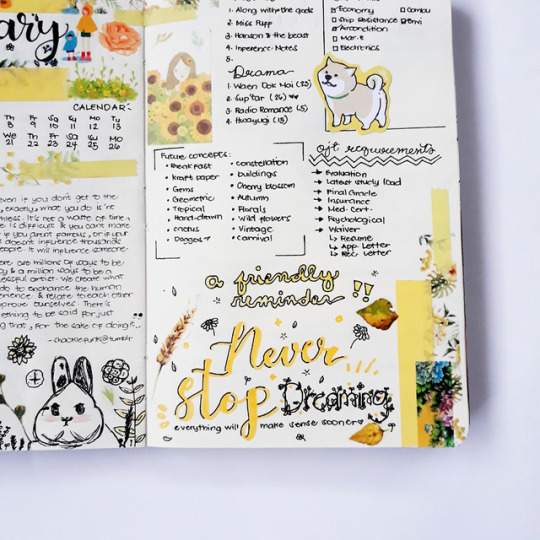 ary
CALENDAR
Th Fr Sa Su Mo Tu
8 9 10 11 12 13
We Th Fr Sa Su Mo
21 22 23 24 25 26
even if you don't get to the
exactly, what you do isn't
It's not a waste of time,
is difficult & you can't make
if you
doesn't influence thousands
people. It will influence someone.
ere are millions of ways to be
& a million ways to be a
successful artist. We create what
do to enchance the human
erience & relate to each other
improve ourselves. There's
mething to be said for just
g that, for the sake of doing it.
1. Along with the gods
2. Miss
3. Hanson & the beast
4. Inference Notes
5.
Drama
1. Waen Dok Mai (23)
2. Sup'tar (26)
3. Radio Romance (5)
4. Hwayugi (13)
Economy
Combu
Ship Resistance
Semi
Aircondition
Mar. E
Electronics
Future concepts:
• Breakfast
• Kraft paper
• Gems
• Geometric
• Tropical
• Hand-drawn
• cactus
• Dogges
• constellation
• buildings
• Cherry blossom
• Autumn
• Florals
• Wild flowers
• Vintage
• Carnival
ojt requirements
→ Evaluation
→ Latest study load
→ Final Grade
→ Insurance
→ Med. Cert.
→ Psychological
→ Waiver
↳ Resume
↳ App. Letter
↳ Rec. Letter
a friendly
reminder !!
Never
stop Dreaming
everything will make sense sooner